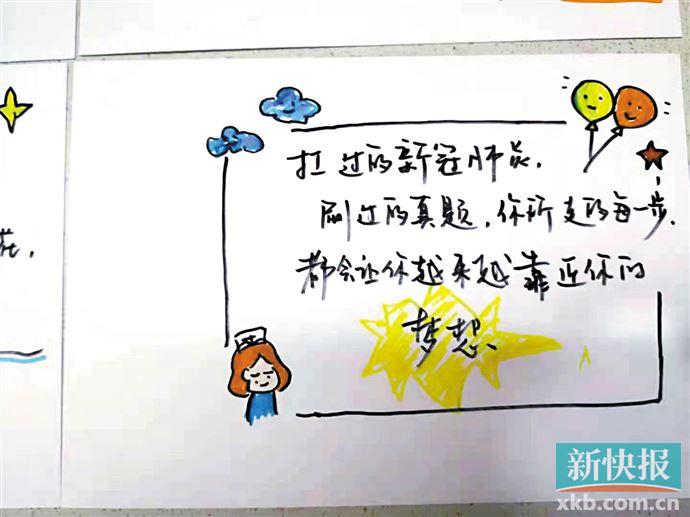 扛过的新冠肺炎，
刷过的真题，你所走的每一步，
都会让你越来越靠近你的
梦想、
新快报
xkb.com.cn